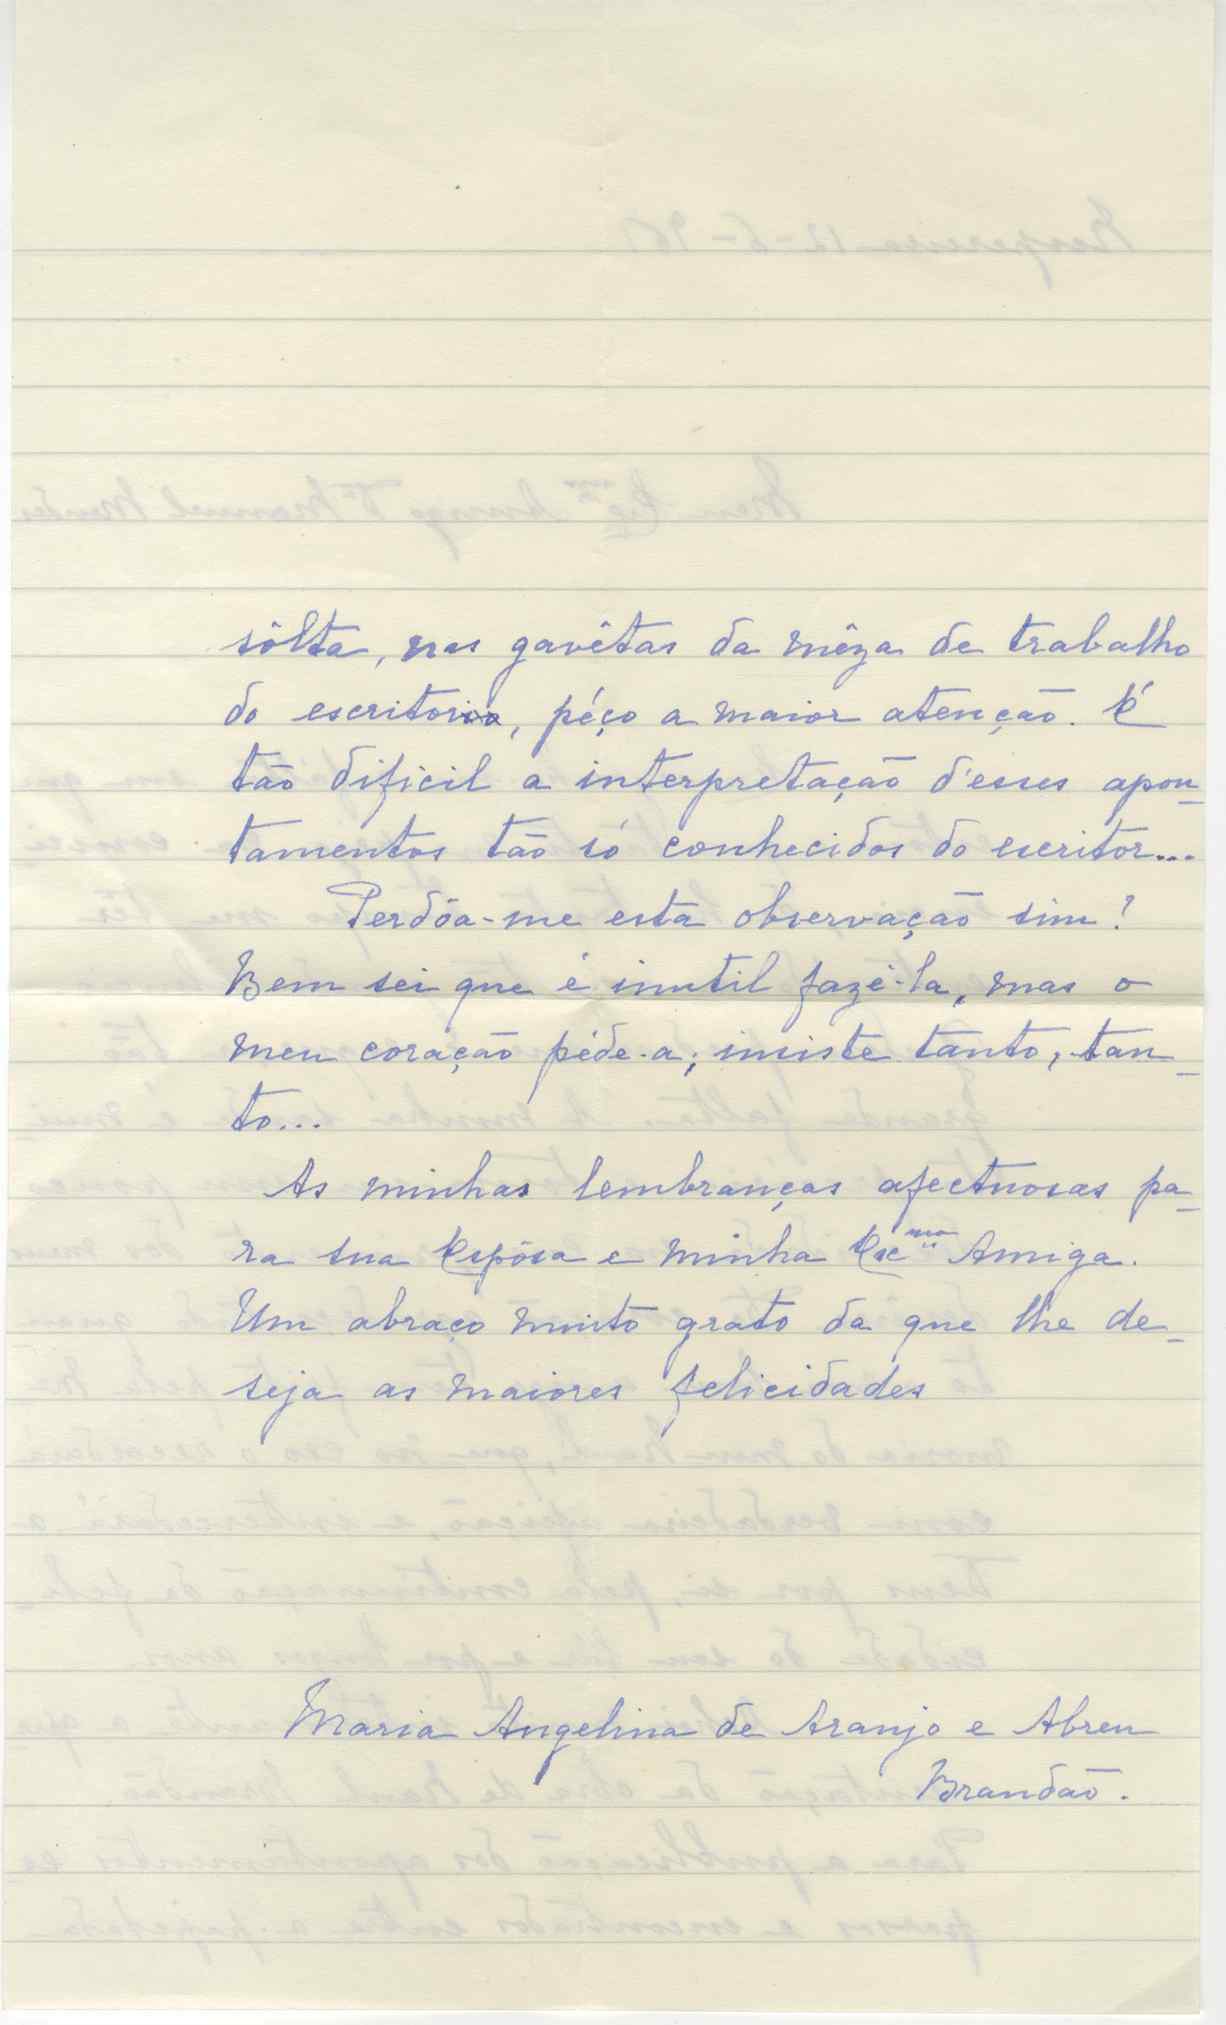 sôlta, nas gavêtas da mêza de trabalho
do escritorio, péço a maior atenção. É
tão dificil a interpretação d'esses apon-
tamentos tão só conhecidos do escritor...
Perdôa-me esta observação sim?
Bem sei que é inutil fazê-la, mas o
meu coração péde-a; insiste tanto, tan-
to...
As minhas lembranças afectuosas pa-
ra sua Espôsa e minha Exc.ma Amiga.
Um abraço muito grato da que lhe de-
seja as maiores felicidades
Maria Angelina de Araujo e Abreu
Brandão.